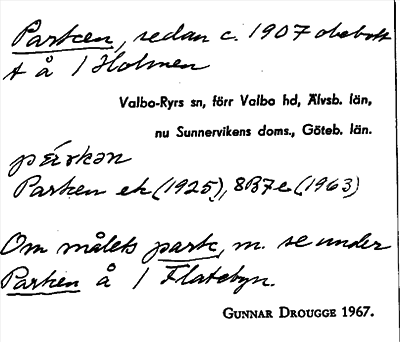 Parken, sedan c. 1907 obebott
t å 1 Holmen
Valbo-Ryrs sn, förr Valbo hd, Älvsb. län,
nu Sunnervikens doms., Göteb. län.
párkən
Parken ek (1925), 8B7e (1963)
Om målets park, m. se under
Parken å 1 Flatebyn.
GUNNAR DROUGGE 1967.